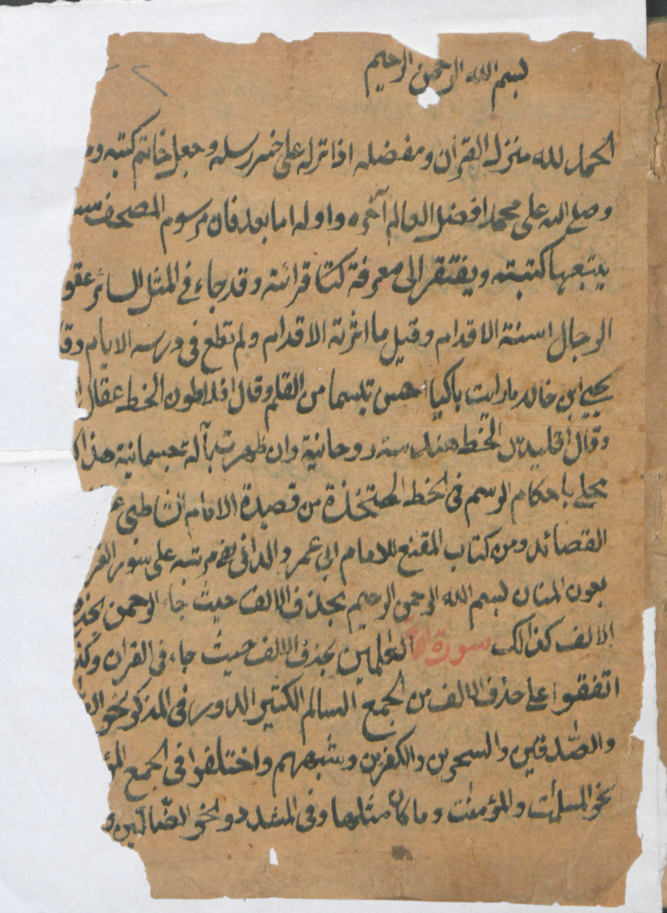 بسم الله الرحمن الرحيم
الحمد لله منزل القرآن ومفضله اذا نزله على خير رسله وجعل خاتم كتبه
وصلى الله على محمد افضل العالم آخره واوله اما بعد فان مرسوم المصحف
يتبعها كتبته ويفتقر الى معرفة كتا قرائته وقد جاء في المثل السائر عقو
الرجال اسنة الاقدام وقيل ما اثرته الاقدام ولم تطع في درسه الايام
يحيى ابن خالد ما رايت باكيا احسن تبسما من القلم وقال افلاطون الخط عقال
وقال اقليدس الخط هندسة روحانية وان ظهرت بآلة جسمانية هذا
محلى باحكام الرسم في الخط المتخذة من قصيدة الامام الشاطبي
القصائد ومن كتاب المقنع للامام ابي عمرو الداني مرتبة على سور
بعون المنان بسم الله الرحمن الرحيم بحذف الالف حيث جاء الرحمن
الالف كذالك سورة العلمين بحذف الالف حيث جاء في القران
اتفقوا على حذف الالف من الجمع السالم الكثير الدور في المذكر نحو
والصدقين والسحرين والكفرين وشبههم واختلفوا في الجمع
نحو المسلمت والمؤمنت وما كان مثلها وفي المشدد نحو الضالين